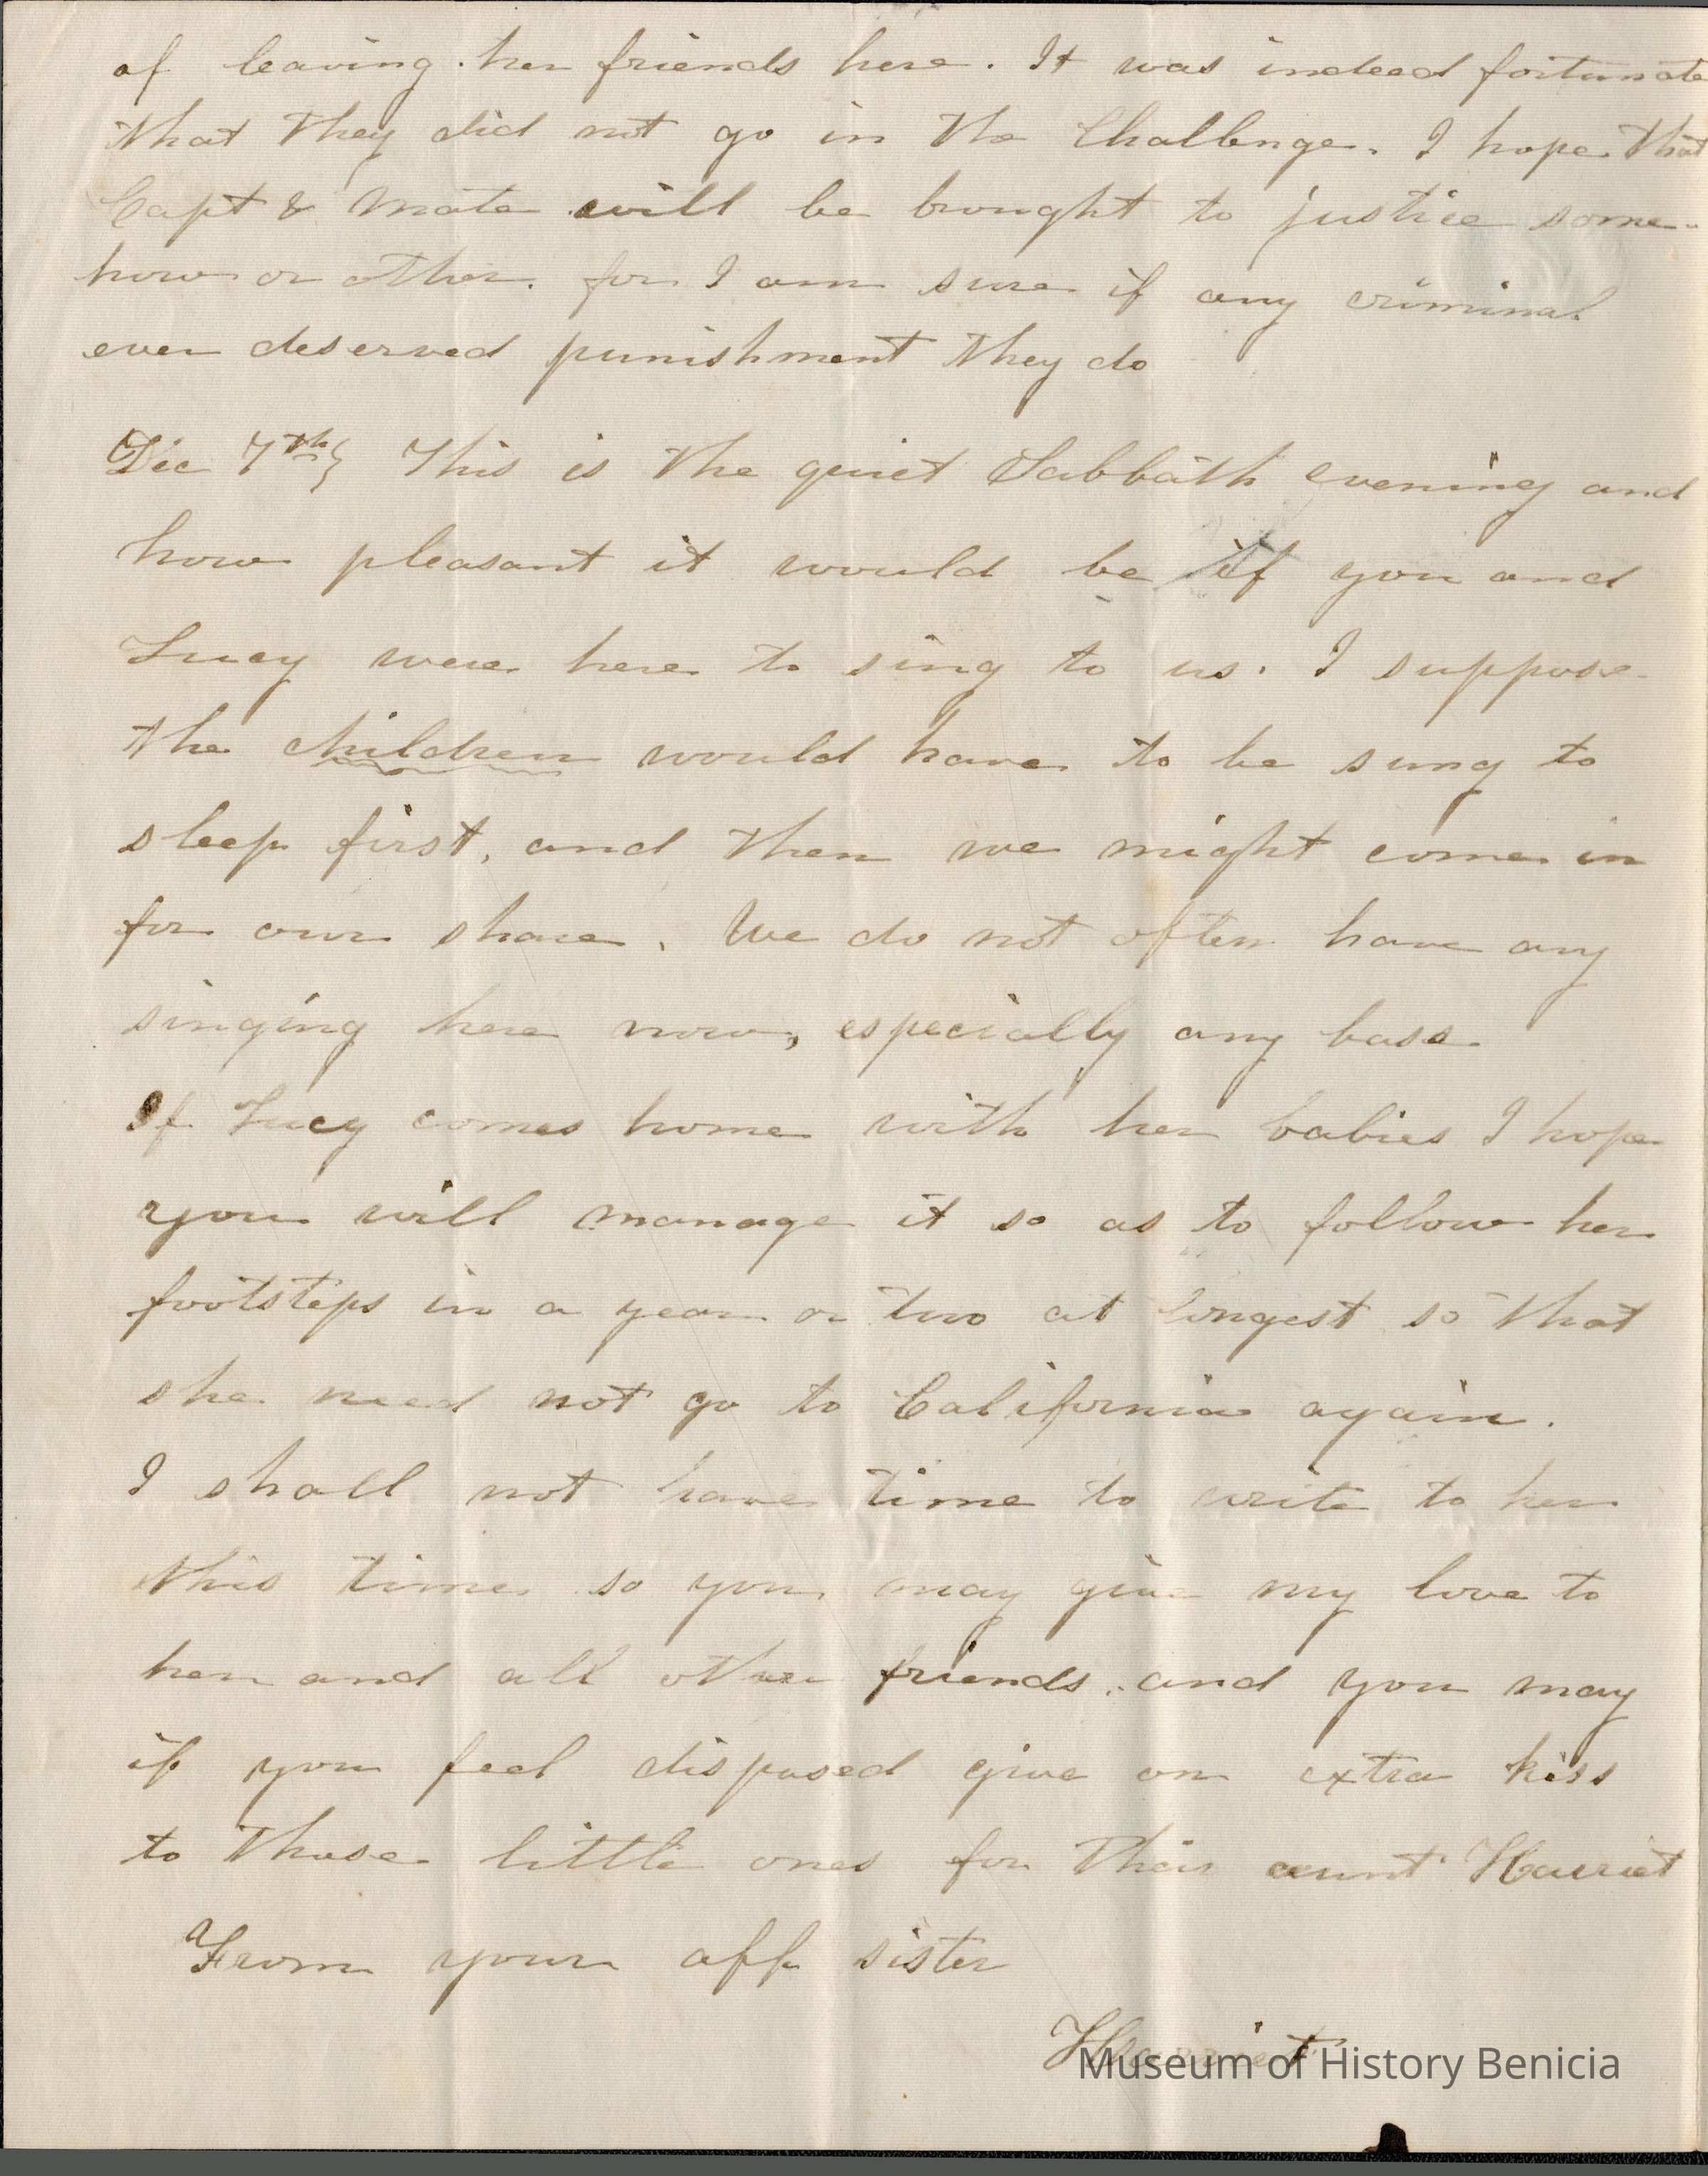 of leaving her friends here. It was indeed fortunate
that they did not go in the Challenge. I hope that
Capt & Mate will be brought to justice some-
how or other. for I am sure if any criminal
ever deserved punishment they do
Dec 7th} This is the quiet Sabbath evening and
how pleasant it would be if you and
Lucy were here to sing to us. I suppose
the children would have to be sung to
sleep first, and then we might come in
for our share. We do not often have any
singing here now, especially any bass
If Lucy comes home with her babies I hope
you will manage it so as to follow her
footsteps in a year or two at longest so that
she need not go to California again.
I shall not have time to write to her
this time so you may give my love to
her and all other friends. and you may
if you feel disposed give an extra kiss
to those little ones for their aunt Harriet
From your aff sister
Harriet
Museum of History Benicia